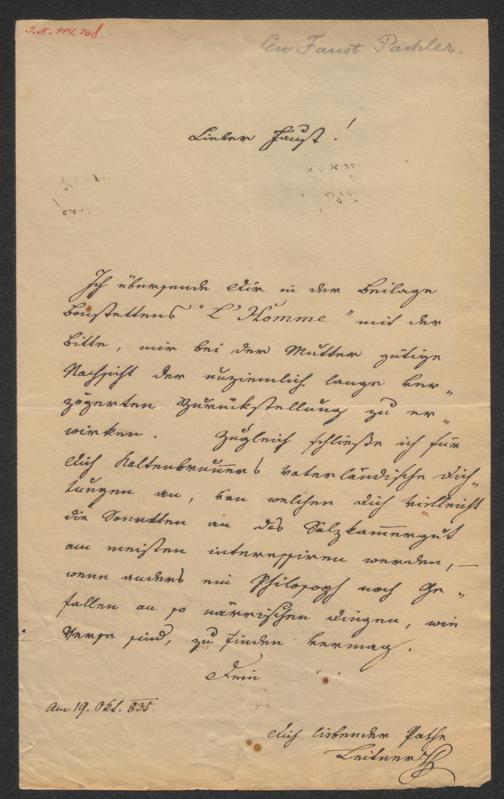 I.N. 114.708
An Faust Pachler.
Lieber Faust!
Ich übersende Dir in der Beilage
Bonstettens "L'Homme" mit der
Bitte, mir bei der Mutter gütige
Nachsicht der unziemlich lange ver„
zögerten Zurückstellung zu er„
wirken. Zugleich schließe ich für
Dich Kaltenbrunners vaterländische Dich„
tungen an, von welchen Dich vielleicht
die Sonetten an das Salzkammergut
am meisten interessiren werden, –
wenn anders ein Philosoph noch Ge„
fallen an so närrischen Dingen, wie
Verse sind, zu finden vermag.
Dein
Am 19. Okt. 835.
Dich liebender Pathe
Leitner